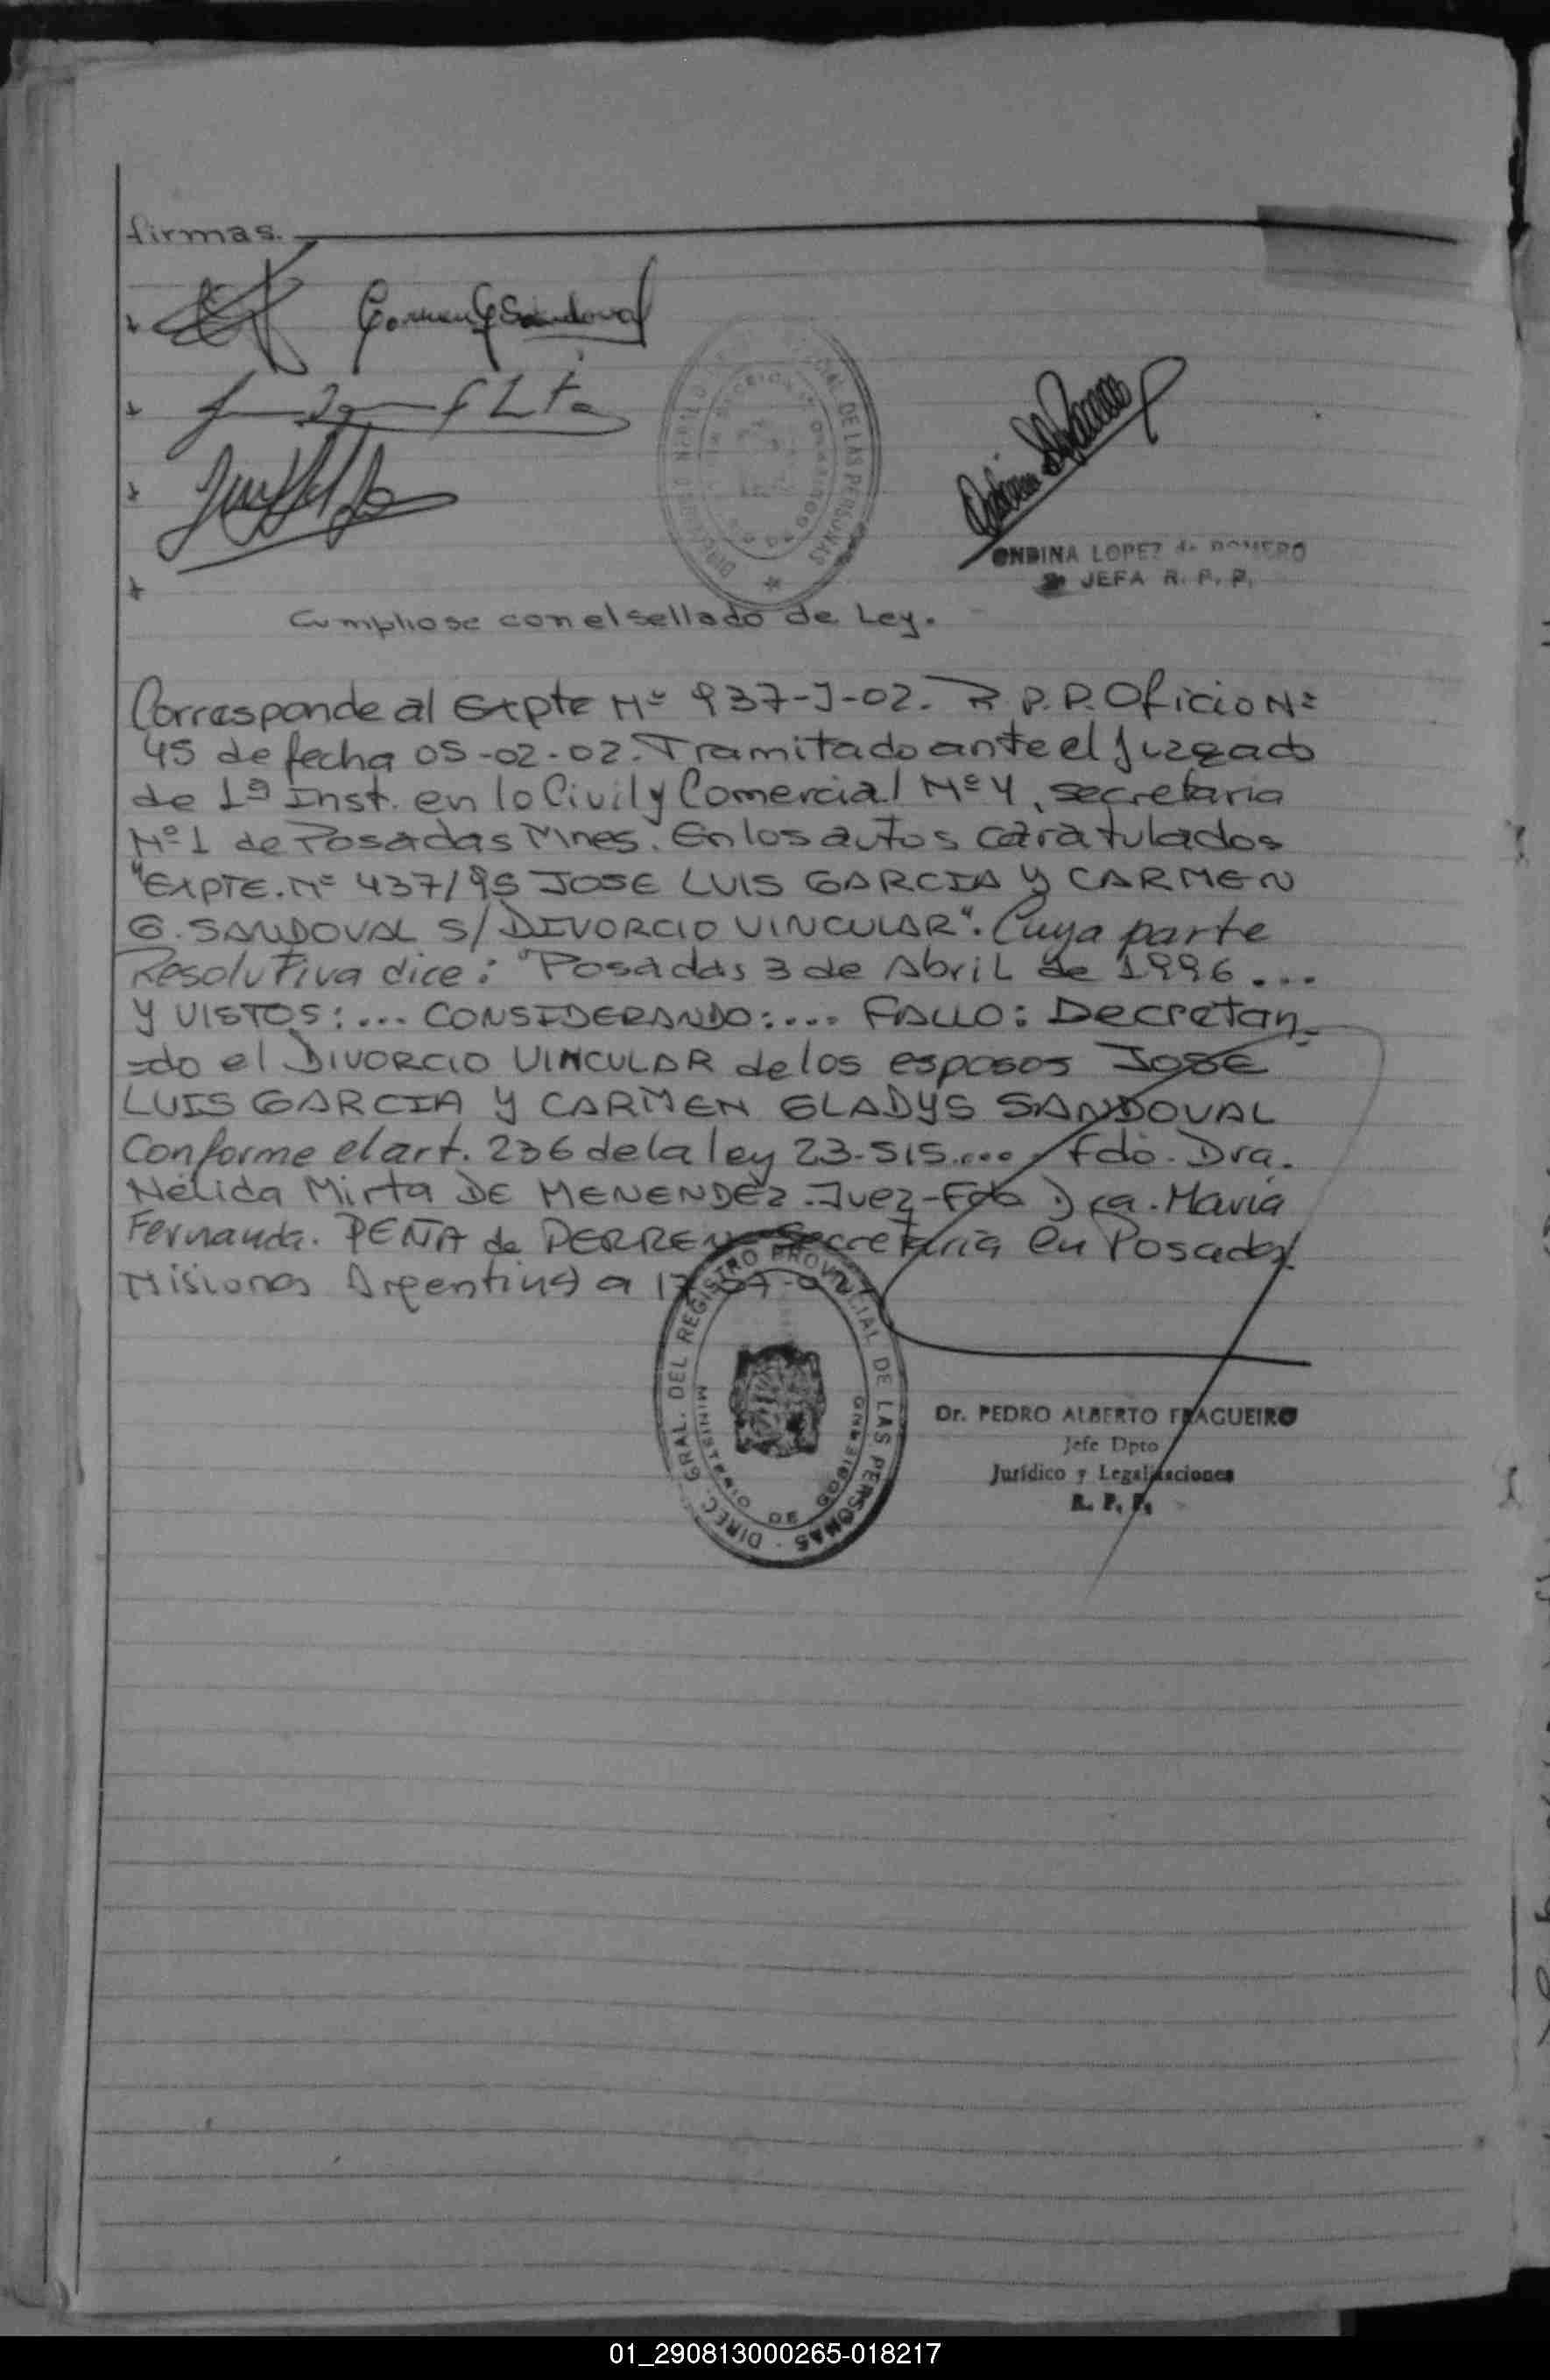 firmas.
Carmen G Sandoval
ONDINA LOPEZ de ROMERO
JEFA R. P. P.
Cumpliose con el sellado de Ley.
Corresponde al Expte Nº 937-J-02. R.P.P. Oficio Nº
45 de fecha 05-02-02. Tramitado ante el Juzgado
de 1ª Inst. en lo Civil y Comercial Nº 4, secretaria
Nº 1 de Posadas Mnes. En los autos caratulados
"EXPTE. Nº 437/95 JOSE LUIS GARCIA y CARMEN
G. SANDOVAL S/ DIVORCIO VINCULAR". Cuya parte
Resolutiva dice: "Posadas 3 de Abril de 1996...
Y VISTOS:... CONSIDERANDO:... FALLO: Decretan_
=do el DIVORCIO VINCULAR de los esposos JOSE
LUIS GARCIA y CARMEN GLADYS SANDOVAL
Conforme el art. 236 de la ley 23-515.... Fdo. Dra.
Nélida Mirta DE MENENDEZ. Juez-Fdo Dra. María
Fernanda. PEÑA de Secretaria en Posadas
Misiones Argentina a
DIREC. GRAL. DEL REGISTRO PROVINCIAL DE LAS PERSONAS
MINISTERIO DE GOBIERNO
Dr. PEDRO ALBERTO FRAGUEIRO
Jefe Dpto
Jurídico y Legalizaciones
R. P. P.
01_290813000265-018217